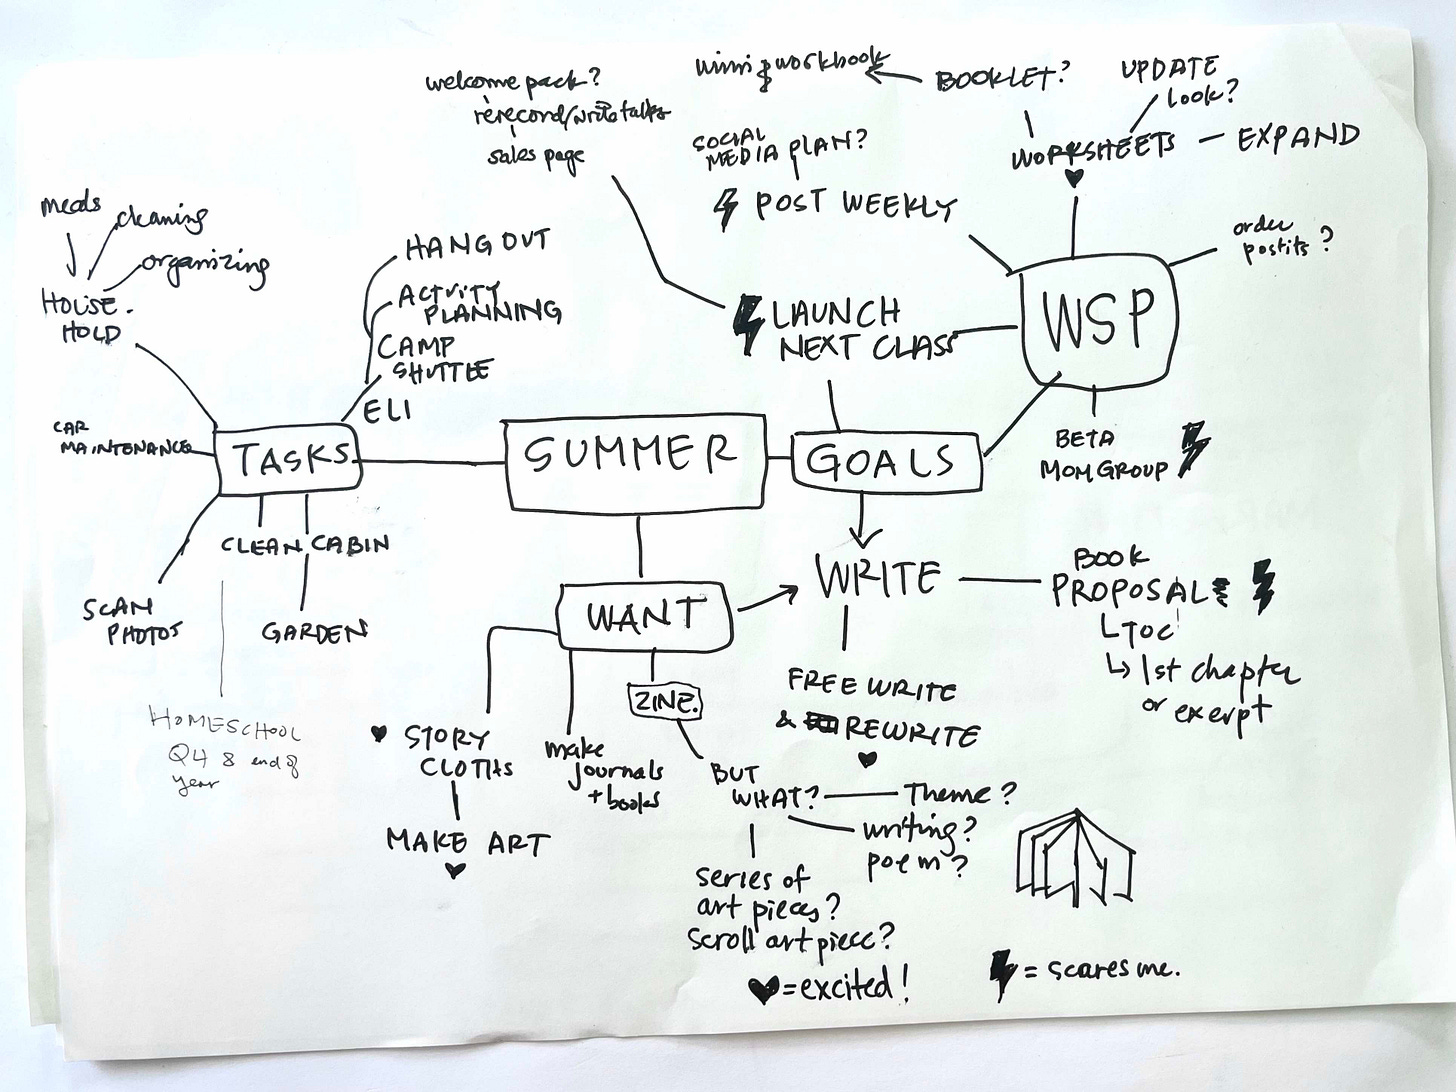 welcome pack?
rerecord/write talks
sales page
mini workbook
BOOKLET?
UPDATE
look?
WORKSHEETS
EXPAND
SOCIAL
MEDIA PLAN?
POST WEEKLY
order
postits?
WSP
LAUNCH
NEXT CLASS
BETA
MOM GROUP
meals
cleaning
organizing
HOUSE-
HOLD
CAR
MAINTENANCE
HANG OUT
ACTVITY
PLANNING
CAMP
SHUTTLE
ELI
TASKS
SUMMER
GOALS
CLEAN CABIN
SCAN
PHOTOS
GARDEN
HOMESCHOOL
Q4 & end of
year
WANT
WRITE
BOOK
PROPOSAL
TOC
1st chapter
or exerpt
FREE WRITE
& REWRITE
ZINE.
STORY
CLOTHS
MAKE ART
make
journals
+ books
BUT
WHAT?
Theme?
writing?
poem?
series of
art pieces?
scroll art piece?
= excited!
= scares me.